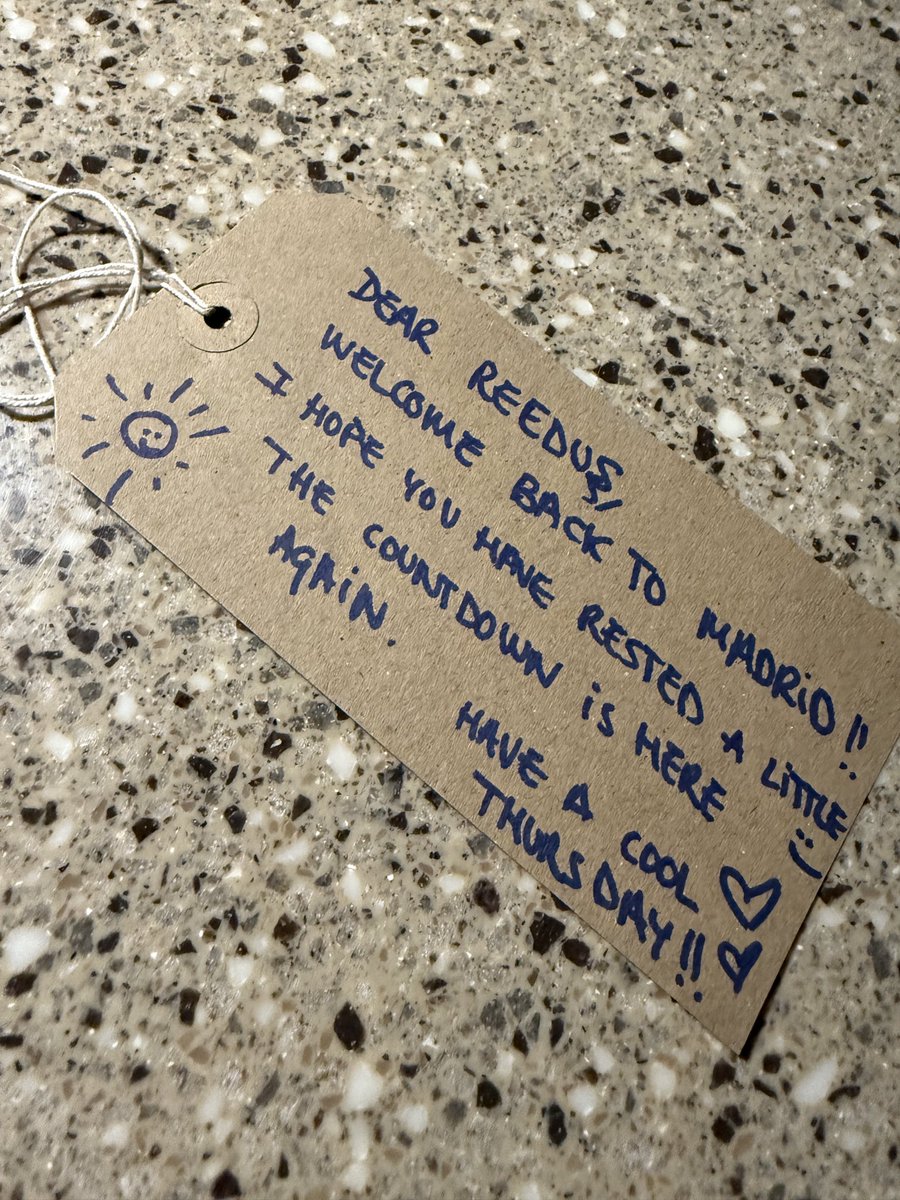 DEAR REEDUS,
WELCOME BACK TO MADRID!!
I HOPE YOU HAVE RESTED A LITTLE
THE COUNTDOWN iS HERE :)
AGAiN.
HAVE A COOL
THURSDAY!!